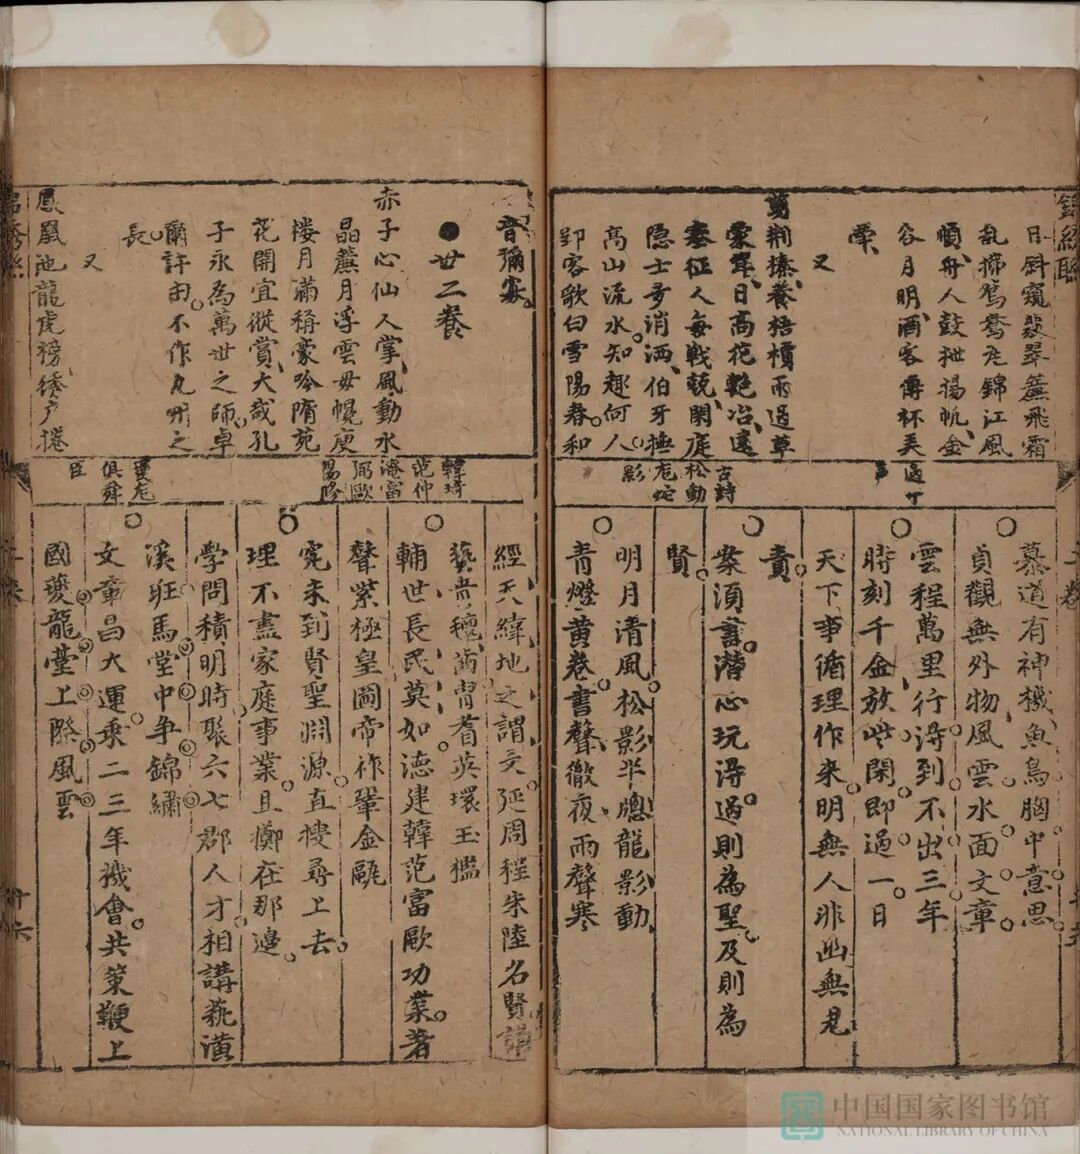 日斜窺翡翠簾飛霜
亂擲鴛鴦尾錦江風
順舟人鼓枻揚帆金
谷月明酒客傳杯弄
斝
又
剪荆榛養梧檟雨過草
蒙茸日高花艷冶遠
塞征人每戰兢閑庭
隐士多消洒伯牙撫
高山流水知趣何人
郢客歌白雪陽春和
古詩
松動
龙蛇
影
慕道有神機魚鳥胸中意思
貞觀無外物風雲水面文章
雲程萬里行淂到不出三年
時刻千金放些閑即過一日
天下事循理作来明無人非幽無鬼
責
案頭書潛心玩淂過則為聖及則為
賢
明月清風松影半牕龍影動
青燈黄卷書聲徹夜雨聲寒
音彌寡
●廿二養
赤子心仙人掌風動水
晶簾月浮雲母幌庾
楼月滿稱豪吟隋苑
花開宜縱賞大哉孔
子永為萬世之師卓
爾許由不作九州之
長
又
鳳凰池龍虎榜綉户捲
韓琦
范仲
淹富
弼歐
陽修
夔龙
俱舜
臣
經天緯地之謂文延周程朱陸名賢講
藝青氊崙胄耆英環玉㯺
輔世長民莫如德建韓范富歐功業著
聲紫極皇圖帝祚鞏金甌
究未到賢聖淵源直搜尋上去
理不盡家庭事業且擲在那邊
學問積明時聚六七郡人才相講蓺潢
溪班馬堂中争錦繡
文章昌大運乘二三年襪會共策鞭上
國夔龍臺上際風雲
中国国家图书馆
NATIONAL LIBRARY OF CHINA